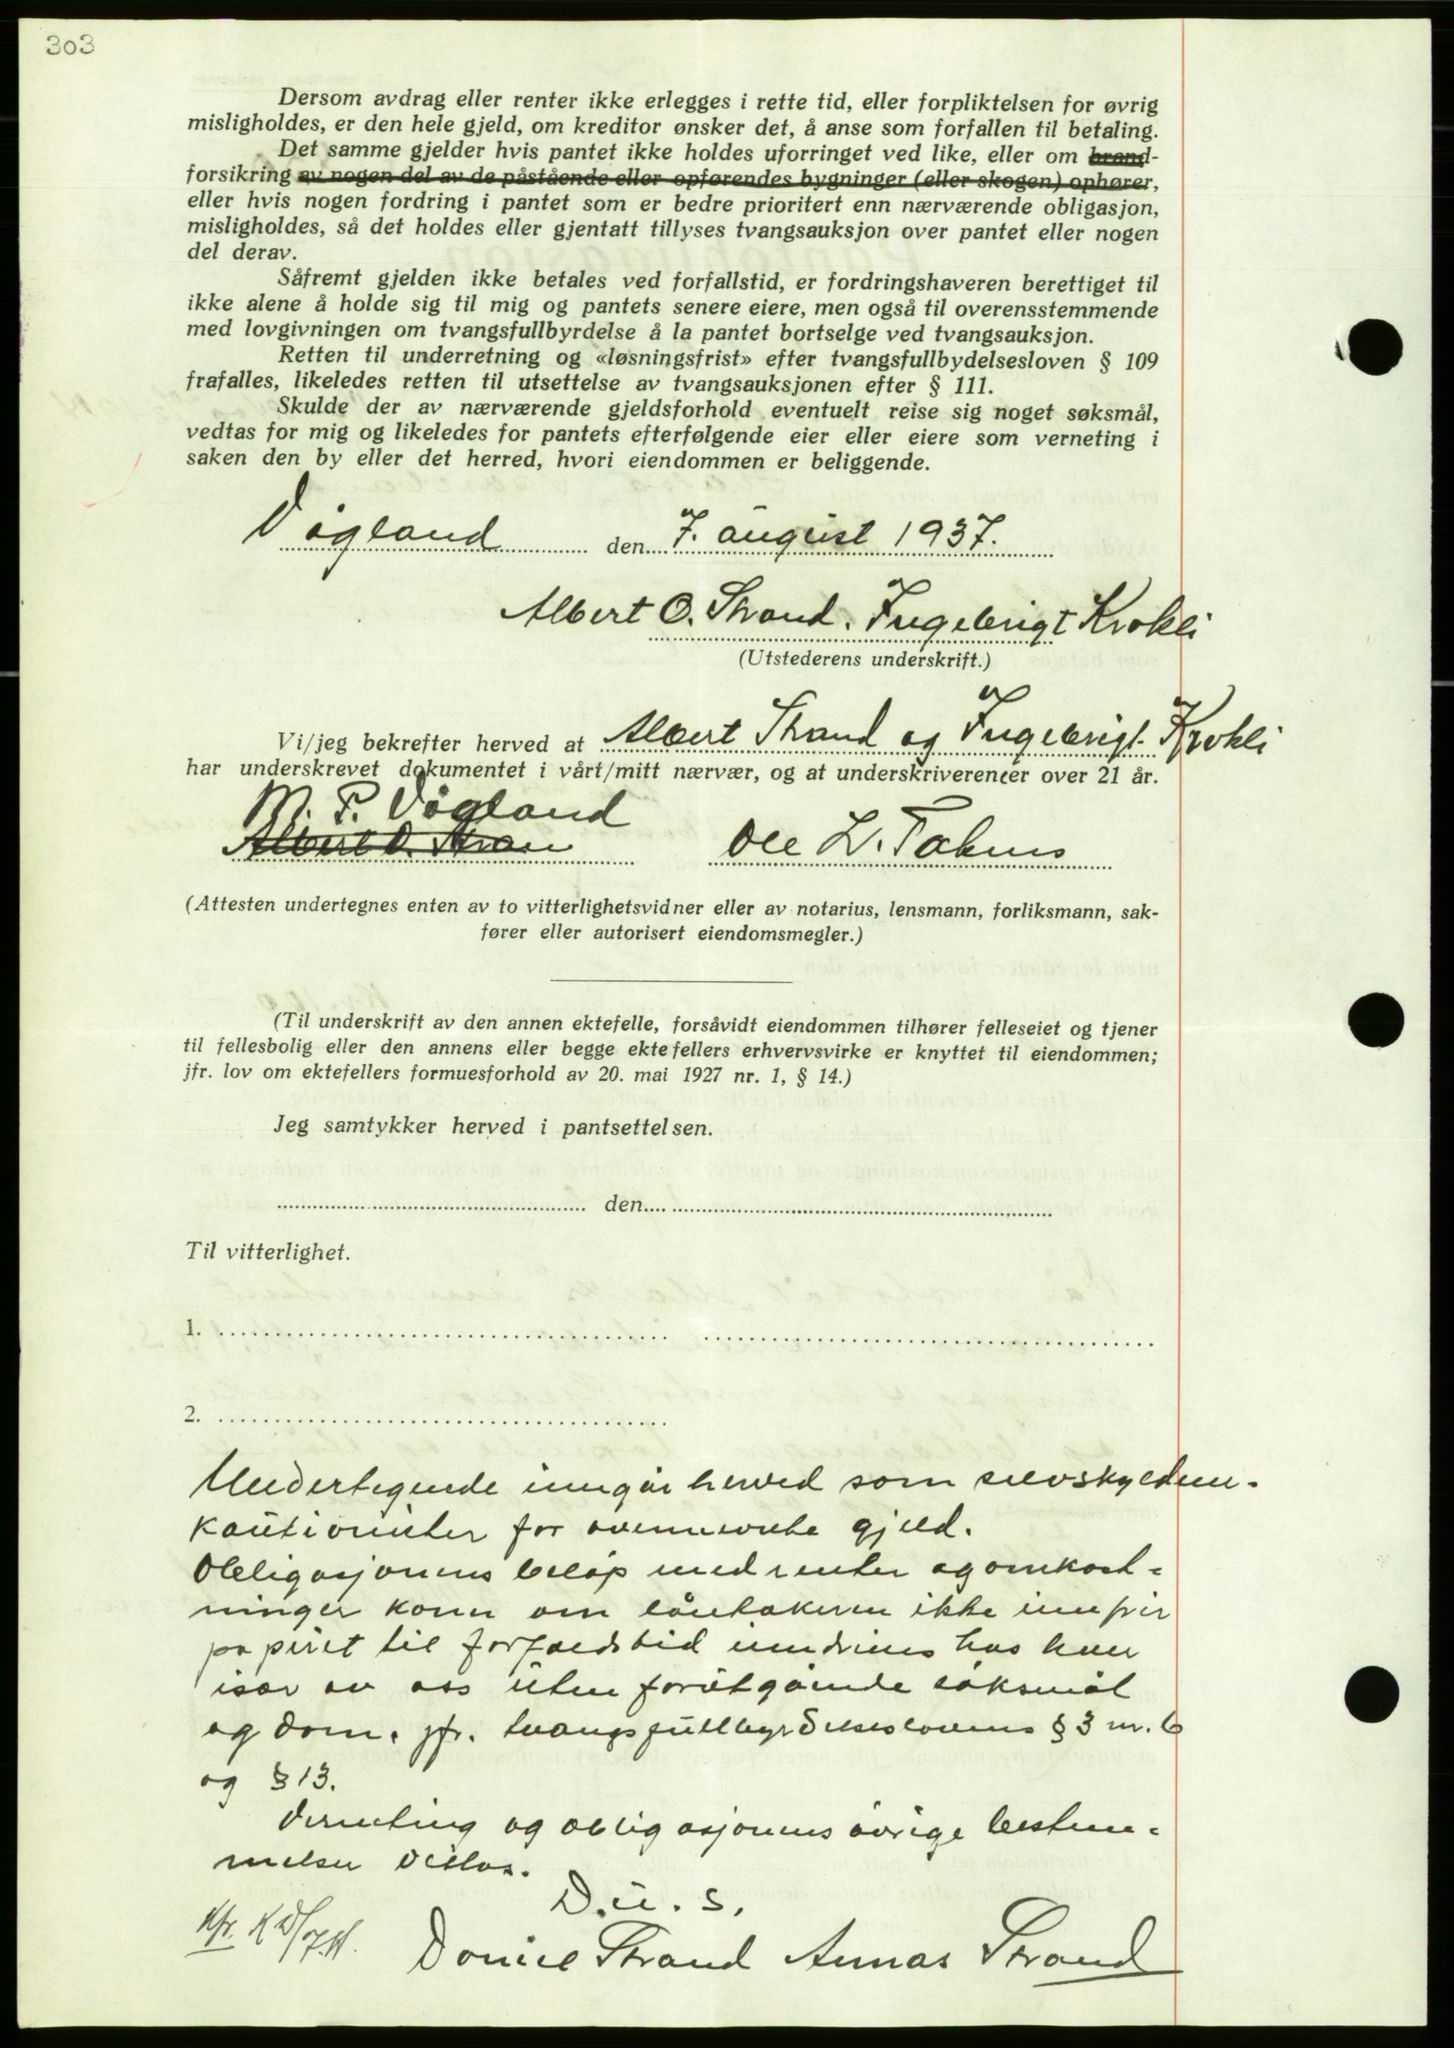 303
Dersom avdrag eller renter ikke erlegges i rette tid, eller forpliktelsen for øvrig
misligholdes, er den hele gjeld, om kreditor ønsker det, å anse som forfallen til betaling.
Det samme gjelder hvis pantet ikke holdes uforringet ved like, eller om brand-
forsikring av nogen del av de påstående eller opførendes bygninger (eller skogen) ophører,
eller hvis nogen fordring i pantet som er bedre prioritert enn nærværende obligasjon,
misligholdes, så det holdes eller gjentatt tillyses tvangsauksjon over pantet eller nogen
del derav.
Såfremt gjelden ikke betales ved forfallstid, er fordringshaveren berettiget til
ikke alene å holde sig til mig og pantets senere eiere, men også til overensstemmende
med lovgivningen om tvangsfullbyrdelse å la pantet bortselge ved tvangsauksjon.
Retten til underretning og «løsningsfrist» efter tvangsfullbydelsesloven § 109
frafalles, likeledes retten til utsettelse av tvangsauksjonen efter § 111.
Skulde der av nærværende gjeldsforhold eventuelt reise sig noget søksmål,
vedtas for mig og likeledes for pantets efterfølgende eier eller eiere som verneting i
saken den by eller det herred, hvori eiendommen er beliggende.
Vågland den 7. august 1937.
Albert O. Strand. Ingebrigt Krokli
(Utstederens underskrift.)
Vi/jeg bekrefter herved at Albert Strand og Ingebrigt Krokli
har underskrevet dokumentet i vårt/mitt nærvær, og at underskriverne er over 21 år.
M. P. Vågland
Albert O. Stran Ole L.
(Attesten undertegnes enten av to vitterlighetsvidner eller av notarius, lensmann, forliksmann, sak-
fører eller autorisert eiendomsmegler.)
(Til underskrift av den annen ektefelle, forsåvidt eiendommen tilhører felleseiet og tjener
til fellesbolig eller den annens eller begge ektefellers erhvervsvirke er knyttet til eiendommen;
jfr. lov om ektefellers formuesforhold av 20. mai 1927 nr. 1, § 14.)
Jeg samtykker herved i pantsettelsen.
den
Til vitterlighet.
1.
2.
Undertegnede inngår herved som selvskyldner-
kautionister for ovennevnte gjeld.
Obligasjonens beløp med renter og omkost-
ninger kann om låntakeren ikke innfrir
papiret til forfaldstid inndrives hos hver
især av oss uten forutgående søksmål
og dom, jfr. tvangsfullbyrdelseslovens § 3 nr. 6
og § 13.
Verneting og obligasjonens øvrige bestem-
melser vedtas.
D.u.s.
Strand Strand